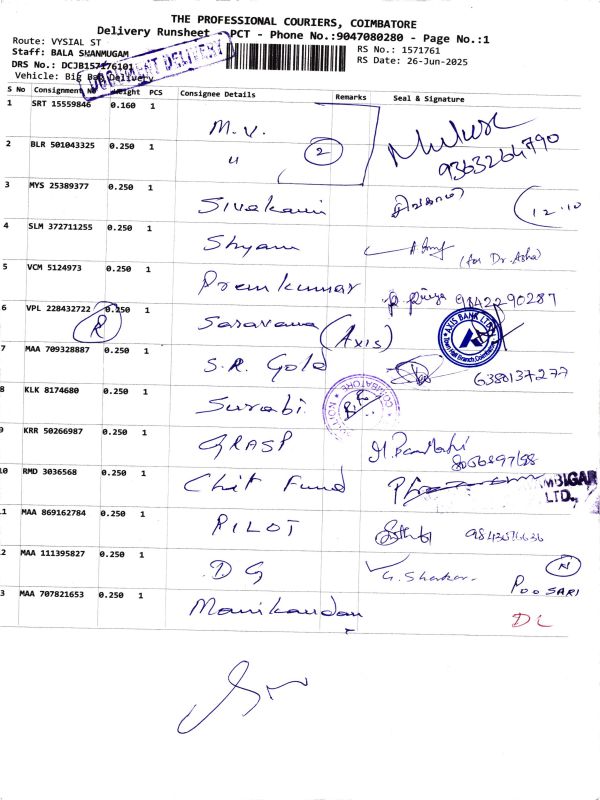 THE PROFESSIONAL COURIERS, COIMBATORE
Delivery Runsheet - PCT - Phone No.:9047080280 - Page No.:1
Route: VYSIAL ST
RS No.: 1571761
Staff: BALA SHANMUGAM
RS Date: 26-Jun-2025
DRS No.: DCJB157176101
Vehicle: Big Bag Delivery
DOCUMENT DELIVERY
S No Consignment No Weight PCS Consignee Details Remarks Seal & Signature
1 SRT 15559846 0.160 1 M.V.
2 BLR 501043325 0.250 1 " 2 9363264790
3 MYS 25389377 0.250 1 Sivakami சிவகாமி 12.10
4 SLM 372711255 0.250 1 Shyam (for Dr. Asha)
5 VCM 5124973 0.250 1 Premkumar 9842290287
6 VPL 228432722 0.250 1 R Saravana (Axis) AXIS BANK LTD
7 MAA 709328887 0.250 1 S.R. Gold 6380137277
8 KLK 8174680 0.250 1 Surabi COIMBATORE
9 KRR 50266987 0.250 1 GRASP
10 RMD 3036568 0.250 1 Chit Fund MBIGAR LTD.,
11 MAA 869162784 0.250 1 PILOT
12 MAA 111395827 0.250 1 DG G. Shekar N POOSARI
13 MAA 707821653 0.250 1 Manikandan DL